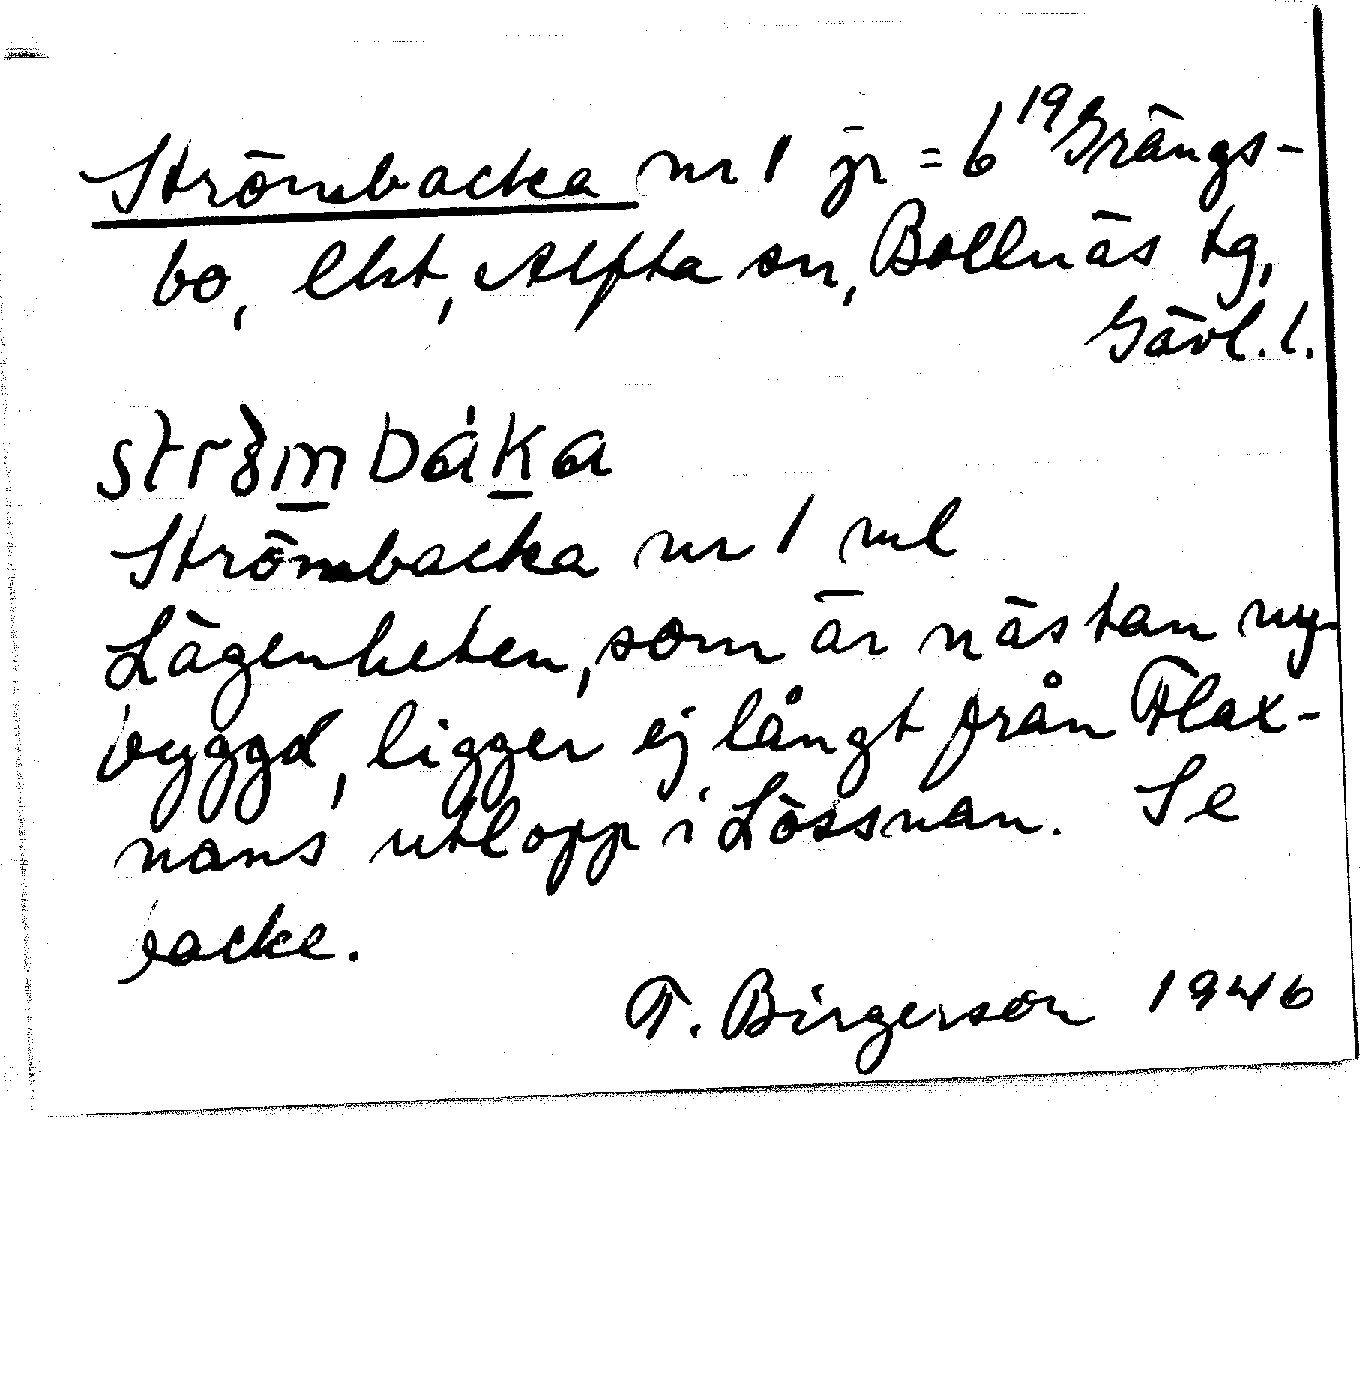 Strömbacka nr 1 jr = 6¹⁹ Grängs-
bo, lht, Alfta sn, Bollnäs tg,
Gävl. l.
strömbáka
Strömbacka nr 1 ml
Lägenheten, som är nästan ny-
byggd, ligger ej långt från Flax-
nans utlopp i Lössnan. Se
backe.
F. Birgerson 1946